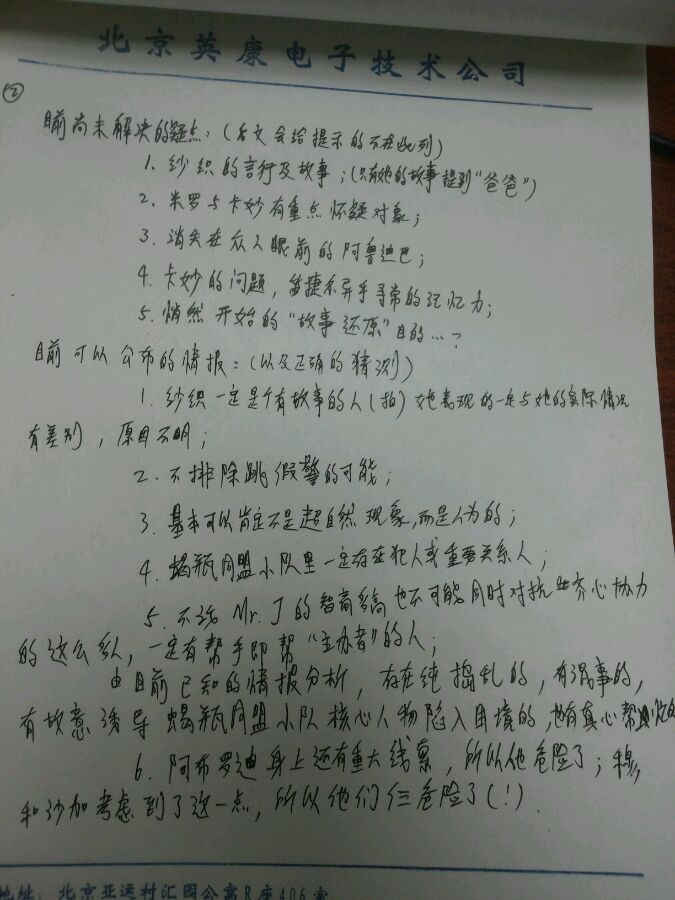 北京英康电子技术公司
②
目前尚未解决的疑点：（后文会给提示的不在此列）
1. 纱织的言行及故事；（只有她的故事提到“爸爸”）
2. 米罗与卡妙有重点怀疑对象；
3. 消失在众人眼前的阿鲁迪巴；
4. 卡妙的问题，笛捷尔异乎寻常的记忆力；
5. 悄然开始的“故事还原”目的…？
目前可以公布的情报：（以及正确的猜测）
1. 纱织一定是个有故事的人（拍）她表现的一定与她的实际情况
有差别，原因不明；
2. 不排除跳假警的可能；
3. 基本可以肯定不是超自然现象，而是人为的；
4. 蝎瓶同盟小队里一定存在犯人或重要关系人；
5. 不论Mr. J的智商多高也不可能同时对抗齐心协力
的这么多人，一定有帮手即帮“主办者”的人；
由目前已知的情报分析，存在纯捣乱的，有混事的，
有故意诱导蝎瓶同盟小队核心人物陷入困境的，也有真心帮忙的
6. 阿布罗迪身上还有重大线索，所以他危险了；穆
和沙加考虑到了这一点，所以他们仨危险了（！）
地址：北京亚运村汇园公寓R座406室